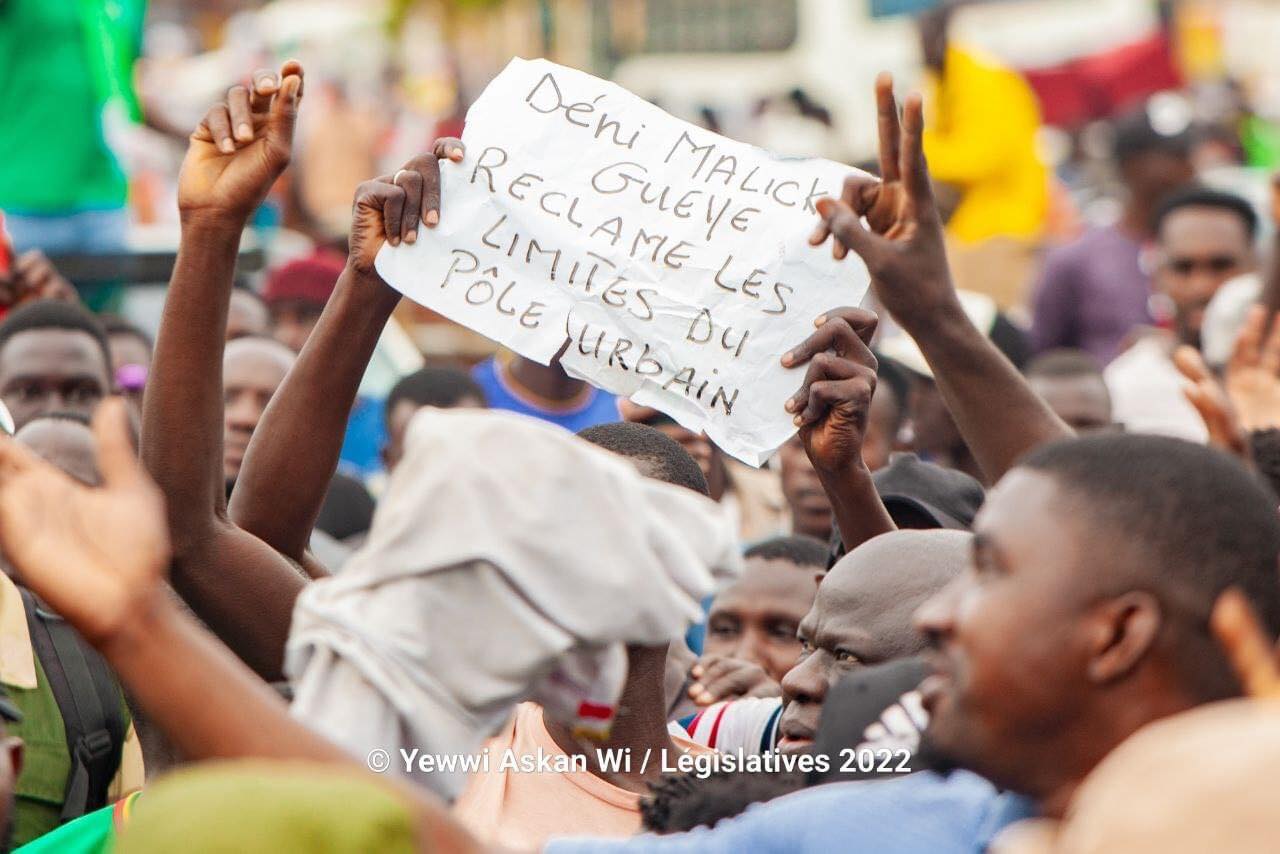 Déni MALICK
GUEYE
RECLAME LES
LIMITES DU
PÔLE URBAIN
© Yewwi Askan Wi / Législatives 2022